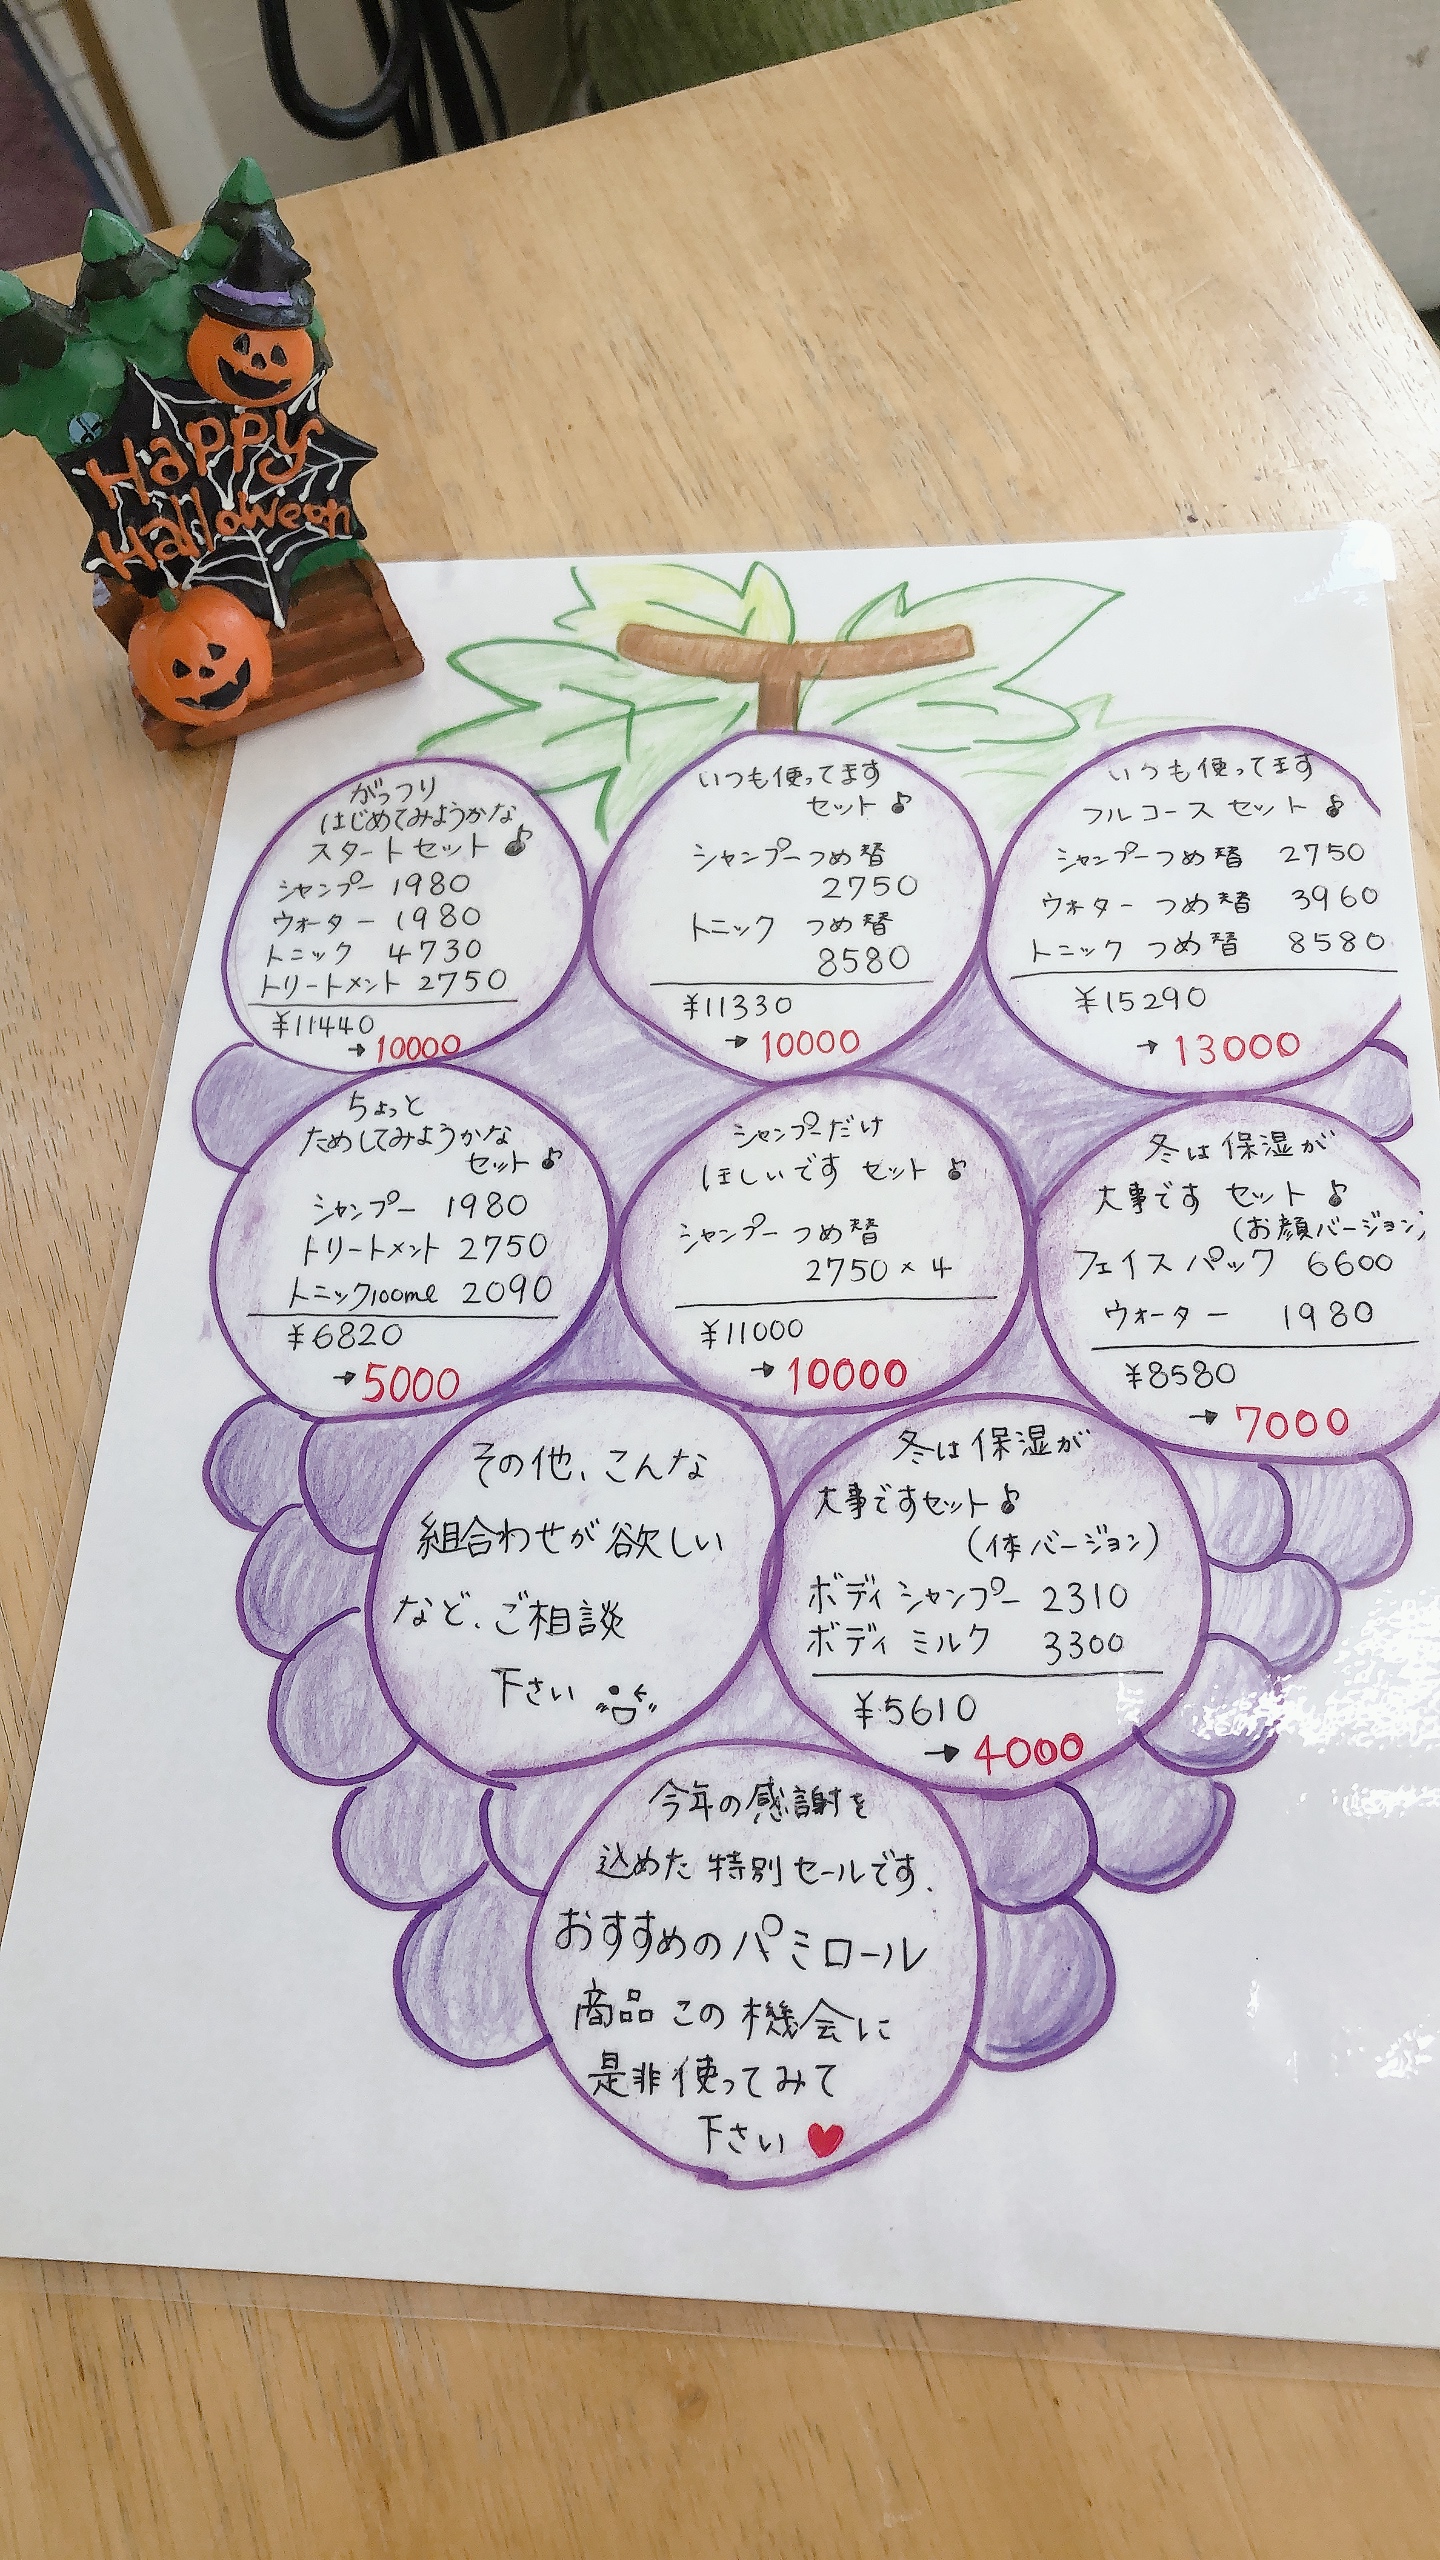 Happy
Halloween
がっつり
はじめてみようかな
スタートセット♪
シャンプー 1980
ウォーター 1980
トニック 4730
トリートメント 2750
¥11440
→10000
いつも使ってます
セット♪
シャンプーつめ替
2750
トニック つめ替
8580
¥11330
→10000
いつも使ってます
フルコースセット♪
シャンプーつめ替 2750
ウォーターつめ替 3960
トニックつめ替 8580
¥15290
→13000
ちょっと
ためしてみようかな
セット♪
シャンプー 1980
トリートメント 2750
トニック100ml 2090
¥6820
→5000
シャンプーだけ
ほしいです セット♪
シャンプーつめ替
2750×4
¥11000
→10000
冬は保湿が
大事です セット♪
(お顔バージョン)
フェイスパック 6600
ウォーター 1980
¥8580
→7000
その他、こんな
組合わせが欲しい
など、ご相談
下さい
冬は保湿が
大事ですセット♪
(体バージョン)
ボディシャンプー 2310
ボディミルク 3300
¥5610
→4000
今年の感謝を
込めた特別セールです、
おすすめのパミロール
商品この機会に
是非使ってみて
下さい♥